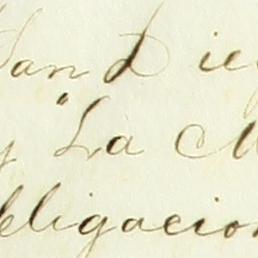 San Die
y "La M
bligacion